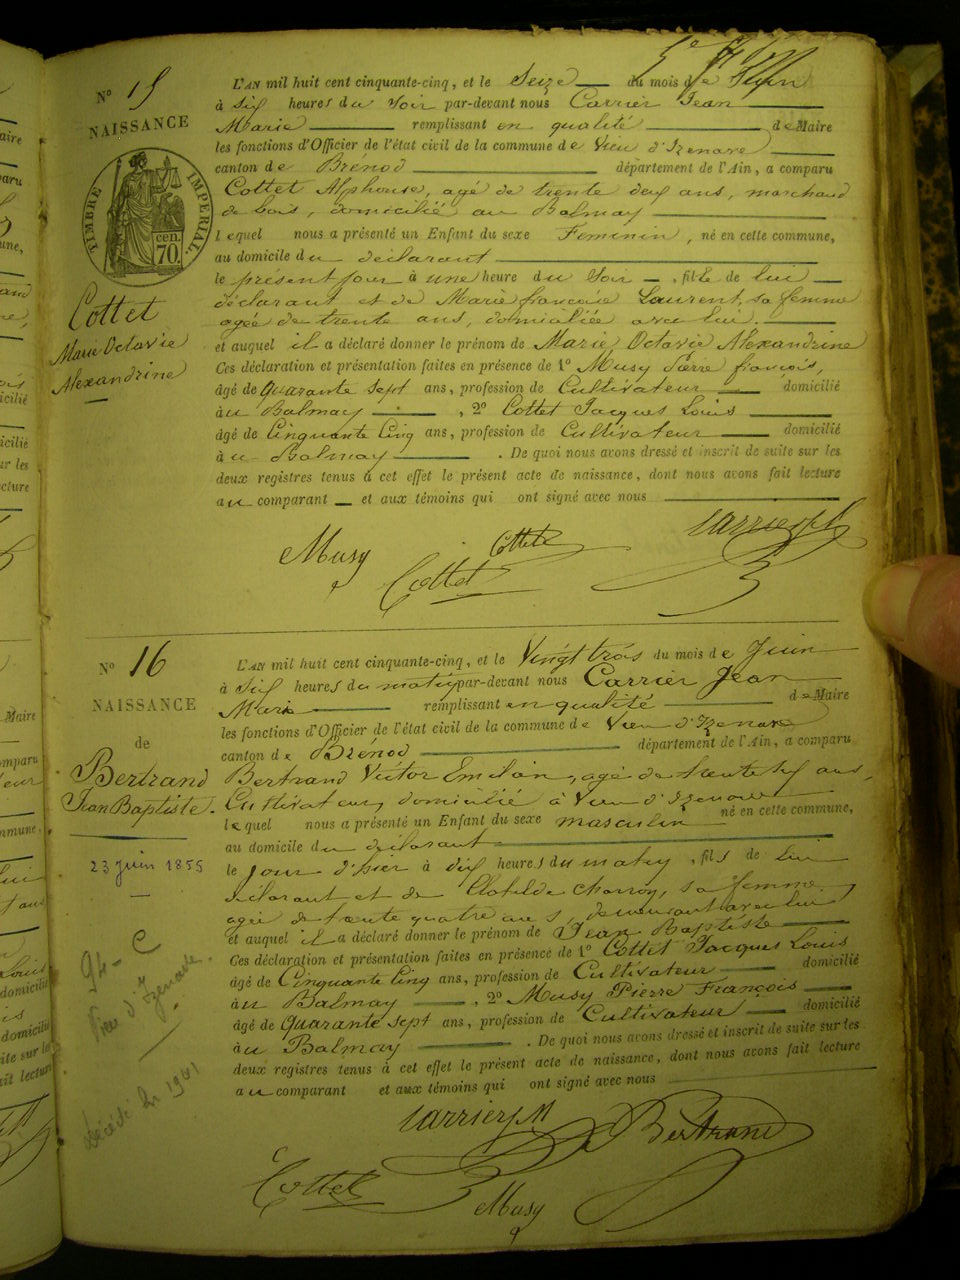 5e
N° 15
NAISSANCE
TIMBRE IMPERIAL.
cen.
70.
Cottet
Marie Octavie
Alexandrine
L'AN mil huit cent cinquante-cinq, et le Seize du mois de Juin
à Six heures du Soir par-devant nous Carrier Jean
Marie remplissant en qualité de Maire
les fonctions d'Officier de l'état civil de la commune de Vieu d'Izenave
canton de Brénod département de l'Ain, a comparu
Cottet Alphonse, agé de trente deux ans, marchand
de bois, domicilié au Balmay
lequel nous a présenté un Enfant du sexe Feminin, né en cette commune,
au domicile du déclarant
le présent jour à une heure du Soir, fille de lui
déclarant et de Marie françoise Laurent, sa femme
agée de trente ans, domiciliée avec lui.
et auquel il a déclaré donner le prénom de Marie Octavie Alexandrine
Ces déclaration et présentation faites en présence de 1° Musy Pierre françois,
âgé de Quarante Sept ans, profession de Cultivateur domicilié
àu Balmay, 2° Cottet Jacques Louis
âgé de Cinquante Cinq ans, profession de Cultivateur domicilié
àu Balmay. De quoi nous avons dressé et inscrit de suite sur les
deux registres tenus à cet effet le présent acte de naissance, dont nous avons fait lecture
au comparant et aux témoins qui ont signé avec nous
Musy Cottet Cottet Carrier JM
N° 16
NAISSANCE
de
Bertrand
Jean Baptiste.
23 juin 1855
94 - C
Vieu d'Izenave.
décédé en 1941
L'AN mil huit cent cinquante-cinq, et le Vingt trois du mois de Juin
à Six heures du matin par-devant nous Carrier Jean
Marie remplissant en qualité de Maire
les fonctions d'Officier de l'état civil de la commune de Vieu d'Izenave
canton de Brénod département de l'Ain, a comparu
Bertrand Victor Emilon, agé de trente six ans,
Cultivateur, domicilié à Vieu d'Izenave
lequel nous a présenté un Enfant du sexe masculin né en cette commune,
au domicile du déclarant
le Jour d'hier à dix heures du matin, fils de lui
déclarant et de Clotilde Charroy, sa femme
agée de trente quatre ans, demeurant avec lui
et auquel il a déclaré donner le prénom de Jean Baptiste
Ces déclaration et présentation faites en présence de 1° Cottet Jacques Louis
âgé de Cinquante Cinq ans, profession de Cultivateur domicilié
àu Balmay, 2° Musy Pierre François
âgé de Quarante Sept ans, profession de Cultivateur domicilié
àu Balmay. De quoi nous avons dressé et inscrit de suite sur les
deux registres tenus à cet effet le présent acte de naissance, dont nous avons fait lecture
au comparant et aux témoins qui ont signé avec nous
Carrier JM Bertrand
Cottet Musy